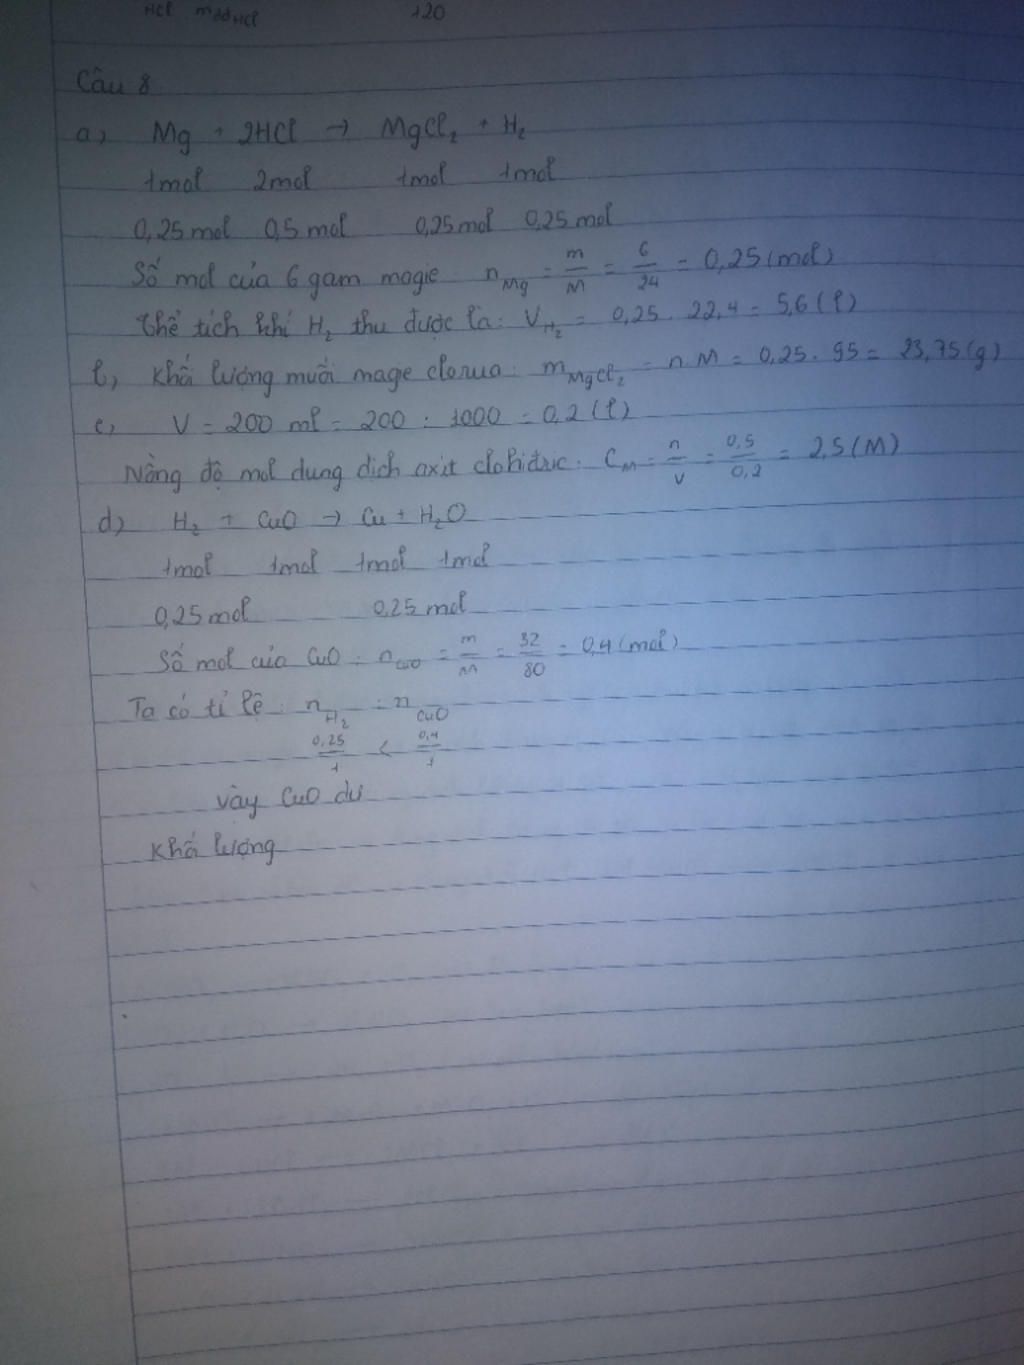 HCl mddHCl 120
Câu 8
a) Mg + 2HCl → MgCl₂ + H₂
1mol 2mol 1mol 1mol
0,25mol 0,5mol 0,25mol 0,25mol
Số mol của 6 gam magie nMg = m/M = 6/24 = 0,25(mol)
Thể tích khí H₂ thu được là: VH₂ = 0,25 . 22,4 = 5,6(l)
b) Khối lượng muối magie clorua: mMgCl₂ = n.M = 0,25 . 95 = 23,75(g)
c) V = 200 ml = 200 : 1000 = 0,2(l)
Nồng độ mol dung dịch axit clohidric: CM = n/V = 0,5/0,2 = 2,5(M)
d) H₂ + CuO → Cu + H₂O
1mol 1mol 1mol 1mol
0,25mol 0,25mol
Số mol của CuO: nCuO = m/M = 32/80 = 0,4(mol)
Ta có tỉ lệ: nH₂ : nCuO
0,25/1 < 0,4/1
vậy CuO dư
Khối lượng